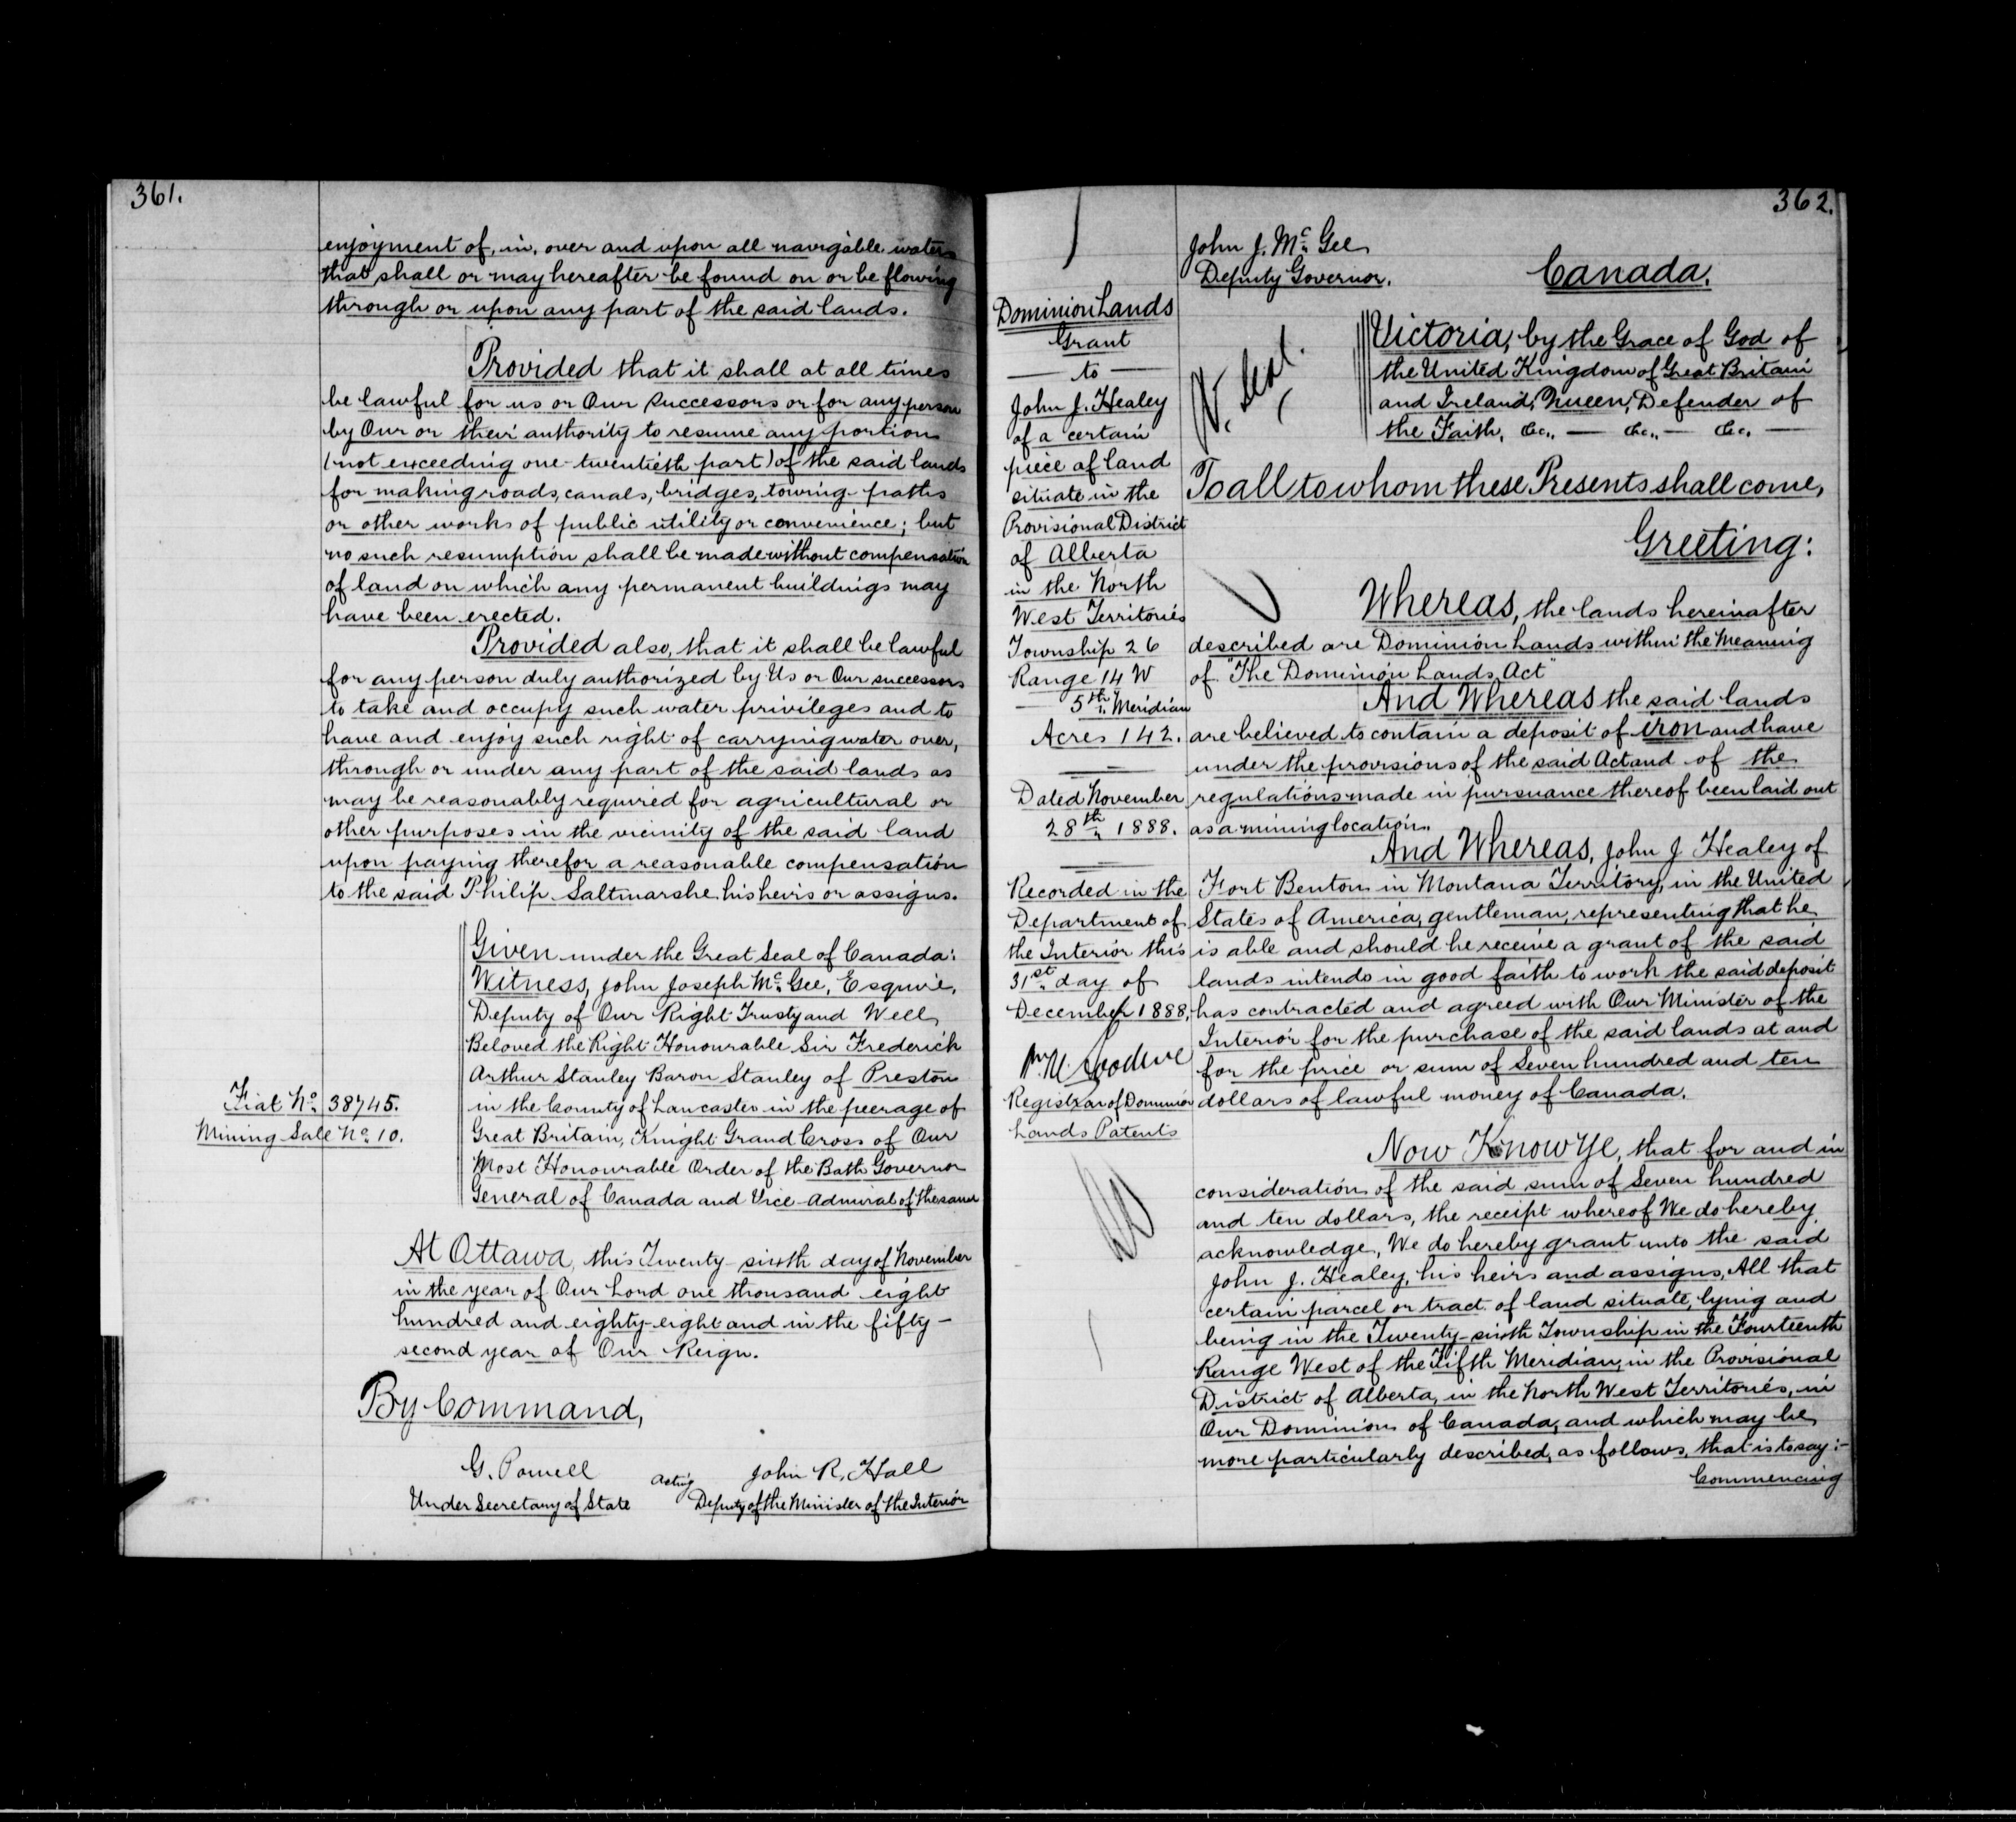 361.
enjoyment of, in, over and upon all navigable waters
that shall or may hereafter be found on or be flowing
through or upon any part of the said lands.
Provided that it shall at all times
be lawful for us or Our Successors or for any person
by Our or their authority to resume any portion
(not exceeding one-twentieth part) of the said lands
for making roads, canals, bridges, towing-paths
or other works of public utility or convenience; but
no such resumption shall be made without compensation
of land on which any permanent buildings may
have been erected.
Provided also, that it shall be lawful
for any person duly authorized by Us or Our successors
to take and occupy such water privileges and to
have and enjoy such right of carrying water over,
through or under any part of the said lands as
may be reasonably required for agricultural or
other purposes in the vicinity of the said land
upon paying therefor a reasonable compensation
to the said Philip Saltmarshe his heirs or assigns.
Given under the Great Seal of Canada:
Witness, John Joseph Mc. Gee, Esquire,
Deputy of Our Right Trusty and Well
Beloved the Right Honourable Sir Frederick
Arthur Stanley Baron Stanley of Preston
in the County of Lancaster in the peerage of
Great Britain, Knight Grand Cross of Our
Most Honourable Order of the Bath Governor
General of Canada and Vice-Admiral of the same
Fiat No. 38745.
Mining Sale No. 10.
At Ottawa, this Twenty-sixth day of November
in the year of Our Lord one thousand eight
hundred and eighty-eight and in the fifty-
second year of Our Reign.
By Command,
G. Powell
Under Secretary of State
John R. Hall
Acting Deputy of the Minister of the Interior
362.
Dominion Lands
Grant
— to —
John J. Healey
of a certain
piece of land
situate in the
Provisional District
of Alberta
in the North
West Territories
Township 26
Range 14 W
5th. Meridian
Acres 142.
Dated November
28th. 1888.
Recorded in the
Department of
the Interior this
31st. day of
December 1888,
Registrar of Dominion
Lands Patents
John J. Mc. Gee
Deputy Governor.
Canada.
Seal.
Victoria, by the Grace of God of
the United Kingdom of Great Britain
and Ireland, Queen, Defender of
the Faith, &c., — &c., — &c. —
To all to whom these Presents shall come,
Greeting:
Whereas, the lands hereinafter
described are Dominion Lands within the Meaning
of "The Dominion Lands Act"
And Whereas the said lands
are believed to contain a deposit of iron and have
under the provisions of the said Act and of the
regulations made in pursuance thereof been laid out
as a mining location.
And Whereas, John J Healey of
Fort Benton in Montana Territory, in the United
States of America, gentleman, representing that he
is able and should he receive a grant of the said
lands intends in good faith to work the said deposit
has contracted and agreed with Our Minister of the
Interior for the purchase of the said lands at and
for the price or sum of Seven hundred and ten
dollars of lawful money of Canada.
Now Know Ye, that for and in
consideration of the said sum of Seven hundred
and ten dollars, the receipt whereof We do hereby
acknowledge, We do hereby grant unto the said
John J. Healey, his heirs and assigns, All that
certain parcel or tract of land situate, lying and
being in the Twenty-sixth Township in the Fourteenth
Range West of the Fifth Meridian, in the Provisional
District of Alberta, in the North West Territories, in
Our Dominion of Canada, and which may be
more particularly described, as follows, that is to say:-
Commencing